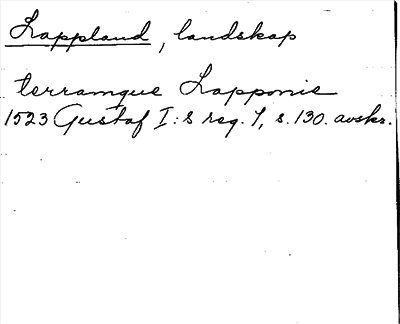 Lappland, landskap
terramque Lapponie
1523 Gustaf I:s reg. 1, s. 130. avskr.